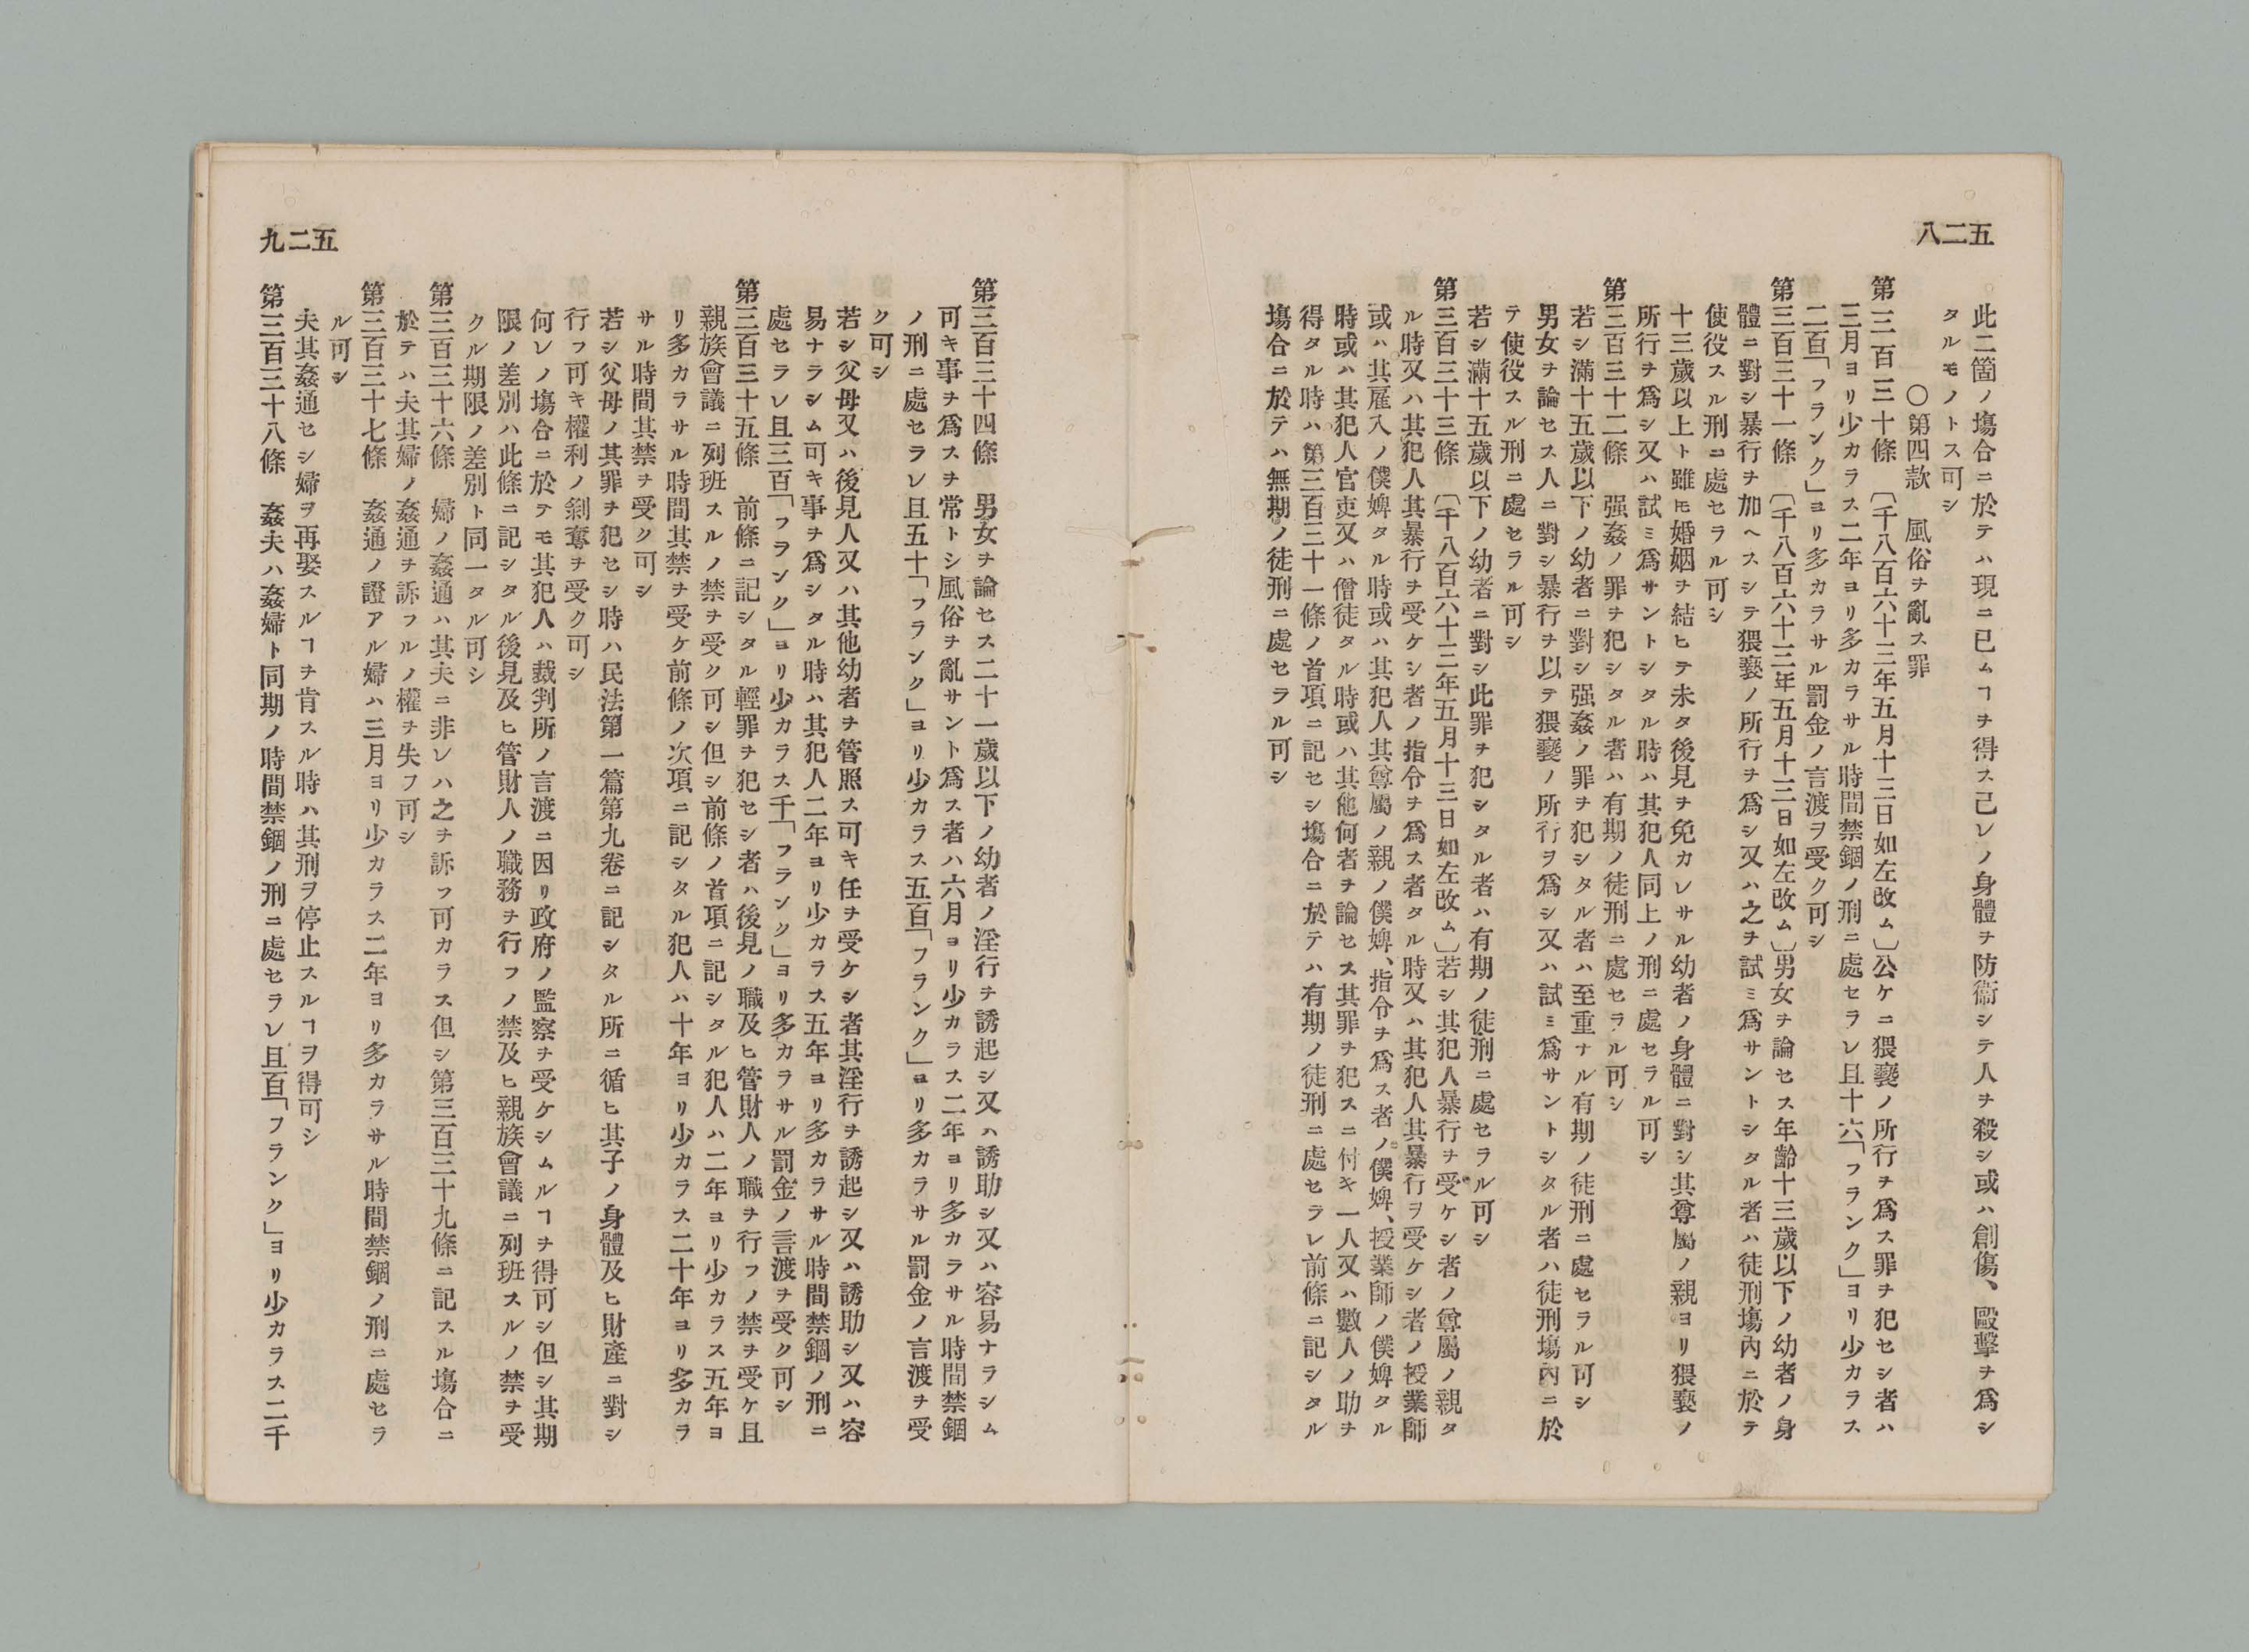 五二八
此二箇ノ塲合ニ於テハ現ニ已ムヿヲ得ス己レノ身體ヲ防衞シテ人ヲ殺シ或ハ創傷、毆擊ヲ爲シ
タルモノトス可シ
〇第四款　風俗ヲ亂ス罪
第三百三十條　〔千八百六十三年五月十三日如左改ム〕公ケニ猥褻ノ所行ヲ爲ス罪ヲ犯セシ者ハ
三月ヨリ少カラス二年ヨリ多カラサル時間禁錮ノ刑ニ處セラレ且十六「フランク」ヨリ少カラス
二百「フランク」ヨリ多カラサル罰金ノ言渡ヲ受ク可シ
第三百三十一條　〔千八百六十三年五月十三日如左改ム〕男女ヲ論セス年齡十三歲以下ノ幼者ノ身
體ニ對シ暴行ヲ加ヘスシテ猥褻ノ所行ヲ爲シ又ハ之ヲ試ミ爲サントシタル者ハ徒刑塲內ニ於テ
使役スル刑ニ處セラル可シ
十三歲以上ト雖モ婚姻ヲ結ヒテ未タ後見ヲ免カレサル幼者ノ身體ニ對シ其尊屬ノ親ヨリ猥褻ノ
所行ヲ爲シ又ハ試ミ爲サントシタル時ハ其犯人同上ノ刑ニ處セラル可シ
第三百三十二條　强姦ノ罪ヲ犯シタル者ハ有期ノ徒刑ニ處セラル可シ
若シ滿十五歲以下ノ幼者ニ對シ强姦ノ罪ヲ犯シタル者ハ至重ナル有期ノ徒刑ニ處セラル可シ
男女ヲ論セス人ニ對シ暴行ヲ以テ猥褻ノ所行ヲ爲シ又ハ試ミ爲サントシタル者ハ徒刑塲內ニ於
テ使役スル刑ニ處セラル可シ
若シ滿十五歲以下ノ幼者ニ對シ此罪ヲ犯シタル者ハ有期ノ徒刑ニ處セラル可シ
第三百三十三條　〔千八百六十三年五月十三日如左改ム〕若シ其犯人暴行ヲ受ケシ者ノ尊屬ノ親タ
ル時又ハ其犯人其暴行ヲ受ケシ者ノ指令ヲ爲ス者タル時又ハ其犯人其暴行ヲ受ケシ者ノ授業師
或ハ其雇入ノ僕婢タル時或ハ其犯人其尊屬ノ親ノ僕婢、指令ヲ爲ス者ノ僕婢、授業師ノ僕婢タル
時或ハ其犯人官吏又ハ僧徒タル時或ハ其他何者ヲ論セス其罪ヲ犯スニ付キ一人又ハ數人ノ助ヲ
得タル時ハ第三百三十一條ノ首項ニ記セシ塲合ニ於テハ有期ノ徒刑ニ處セラレ前條ニ記シタル
塲合ニ於テハ無期ノ徒刑ニ處セラル可シ
五二九
第三百三十四條　男女ヲ論セス二十一歲以下ノ幼者ノ淫行ヲ誘起シ又ハ誘助シ又ハ容易ナラシム
可キ事ヲ爲スヲ常トシ風俗ヲ亂サント爲ス者ハ六月ヨリ少カラス二年ヨリ多カラサル時間禁錮
ノ刑ニ處セラレ且五十「フランク」ヨリ少カラス五百「フランク」ヨリ多カラサル罰金ノ言渡ヲ受
ク可シ
若シ父母又ハ後見人又ハ其他幼者ヲ管照ス可キ任ヲ受ケシ者其淫行ヲ誘起シ又ハ誘助シ又ハ容
易ナラシム可キ事ヲ爲シタル時ハ其犯人二年ヨリ少カラス五年ヨリ多カラサル時間禁錮ノ刑ニ
處セラレ且三百「フランク」ヨリ少カラス千「フランク」ヨリ多カラサル罰金ノ言渡ヲ受ク可シ
第三百三十五條　前條ニ記シタル輕罪ヲ犯セシ者ハ後見ノ職及ヒ管財人ノ職ヲ行フノ禁ヲ受ケ且
親族會議ニ列班スルノ禁ヲ受ク可シ但シ前條ノ首項ニ記シタル犯人ハ二年ヨリ少カラス五年ヨ
リ多カラサル時間其禁ヲ受ケ前條ノ次項ニ記シタル犯人ハ十年ヨリ少カラス二十年ヨリ多カラ
サル時間其禁ヲ受ク可シ
若シ父母ノ其罪ヲ犯セシ時ハ民法第一篇第九卷ニ記シタル所ニ循ヒ其子ノ身體及ヒ財產ニ對シ
行フ可キ權利ノ剝奪ヲ受ク可シ
何レノ塲合ニ於テモ其犯人ハ裁判所ノ言渡ニ因リ政府ノ監察ヲ受ケシムルヿヲ得可シ但シ其期
限ノ差別ハ此條ニ記シタル後見及ヒ管財人ノ職務ヲ行フノ禁及ヒ親族會議ニ列班スルノ禁ヲ受
クル期限ノ差別ト同一タル可シ
第三百三十六條　婦ノ姦通ハ其夫ニ非レハ之ヲ訴フ可カラス但シ第三百三十九條ニ記スル塲合ニ
於テハ夫其婦ノ姦通ヲ訴フルノ權ヲ失フ可シ
第三百三十七條　姦通ノ證アル婦ハ三月ヨリ少カラス二年ヨリ多カラサル時間禁錮ノ刑ニ處セラ
ル可シ
夫其姦通セシ婦ヲ再娶スルヿヲ肯スル時ハ其刑ヲ停止スルヿヲ得可シ
第三百三十八條　姦夫ハ姦婦ト同期ノ時間禁錮ノ刑ニ處セラレ且百「フランク」ヨリ少カラス二千